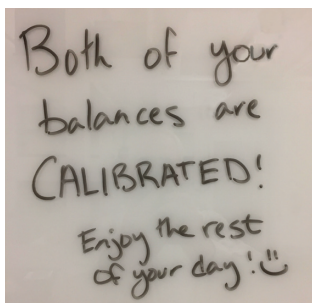 Both of your
balances are
CALIBRATED!
Enjoy the rest
of your day! :)